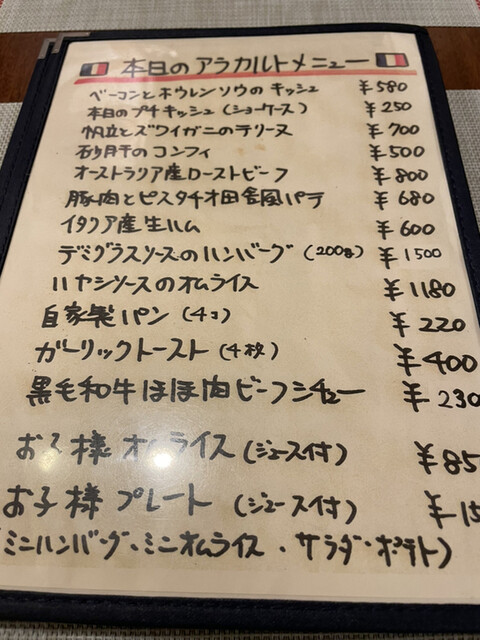 本日のアラカルトメニュー
ベーコンとホウレンソウのキッシュ ¥580
本日のプチキッシュ(ショーケース) ¥250
帆立とズワイガニのテリーヌ ¥700
砂肝のコンフィ ¥500
オーストラリア産ローストビーフ ¥800
豚肉とピスタチオ田舎風パテ ¥680
イタリア産生ハム ¥600
デミグラスソースのハンバーグ(200g) ¥1500
ハヤシソースのオムライス ¥1180
自家製パン(4コ) ¥220
ガーリックトースト(4枚) ¥400
黒毛和牛ほほ肉ビーフシチュー ¥230
お子様オムライス(ジュース付) ¥85
お子様プレート(ジュース付) ¥15
(ミニハンバーグ・ミニオムライス・サラダ・ポテト)